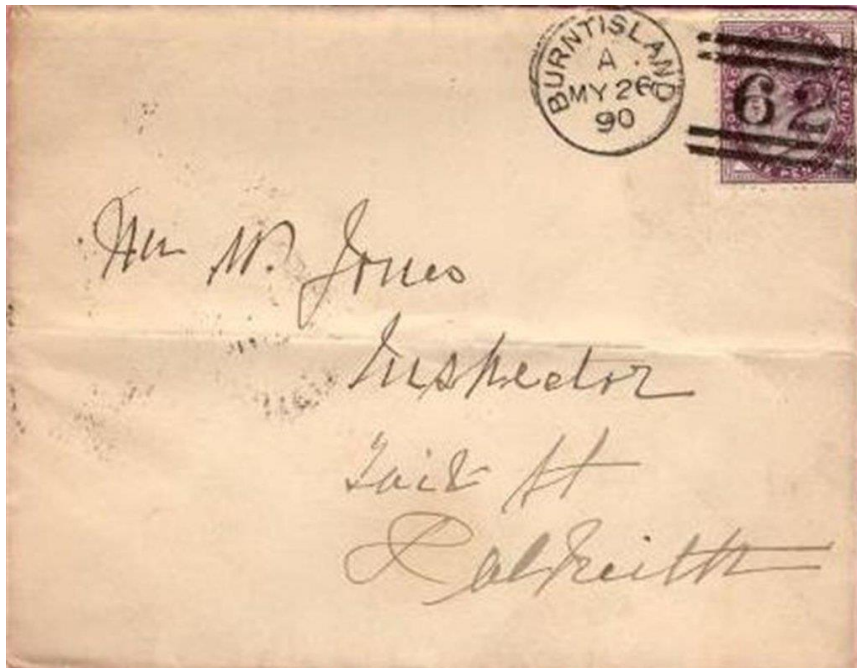 BURNTISLAND
A
MY 26
90
62
Mr W. Jones
Inspector
Tait St
Dalkeith